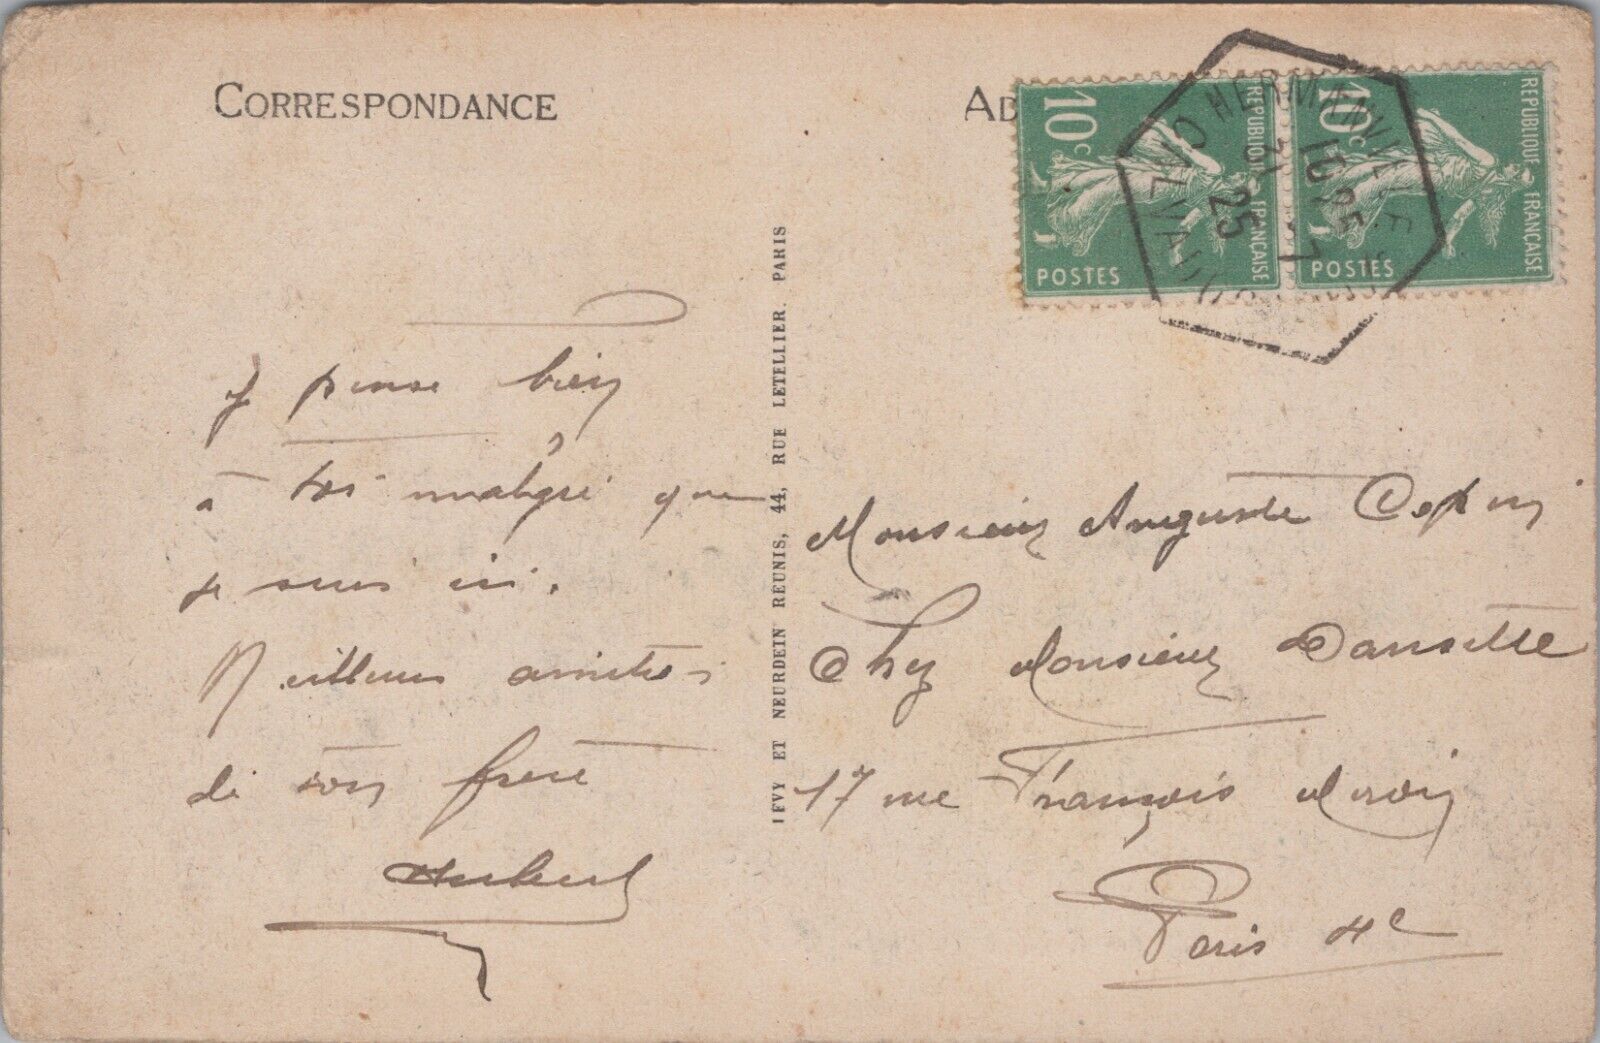 CORRESPONDANCE
AD
10c
REPUBLIQUE FRANÇAISE
POSTES
10c
REPUBLIQUE FRANÇAISE
POSTES
HERMANVILLE
CALVADOS
10 25
31 -7
25
Je pense bien
à toi malgré que
je suis ici.
Meilleures amitiés
de ton frère
Hubert
LEVY ET NEURDEIN REUNIS, 44, RUE LETELLIER. PARIS
Monsieur Auguste
Chez Monsieur Dansette
17 rue François Miron
Paris 4e